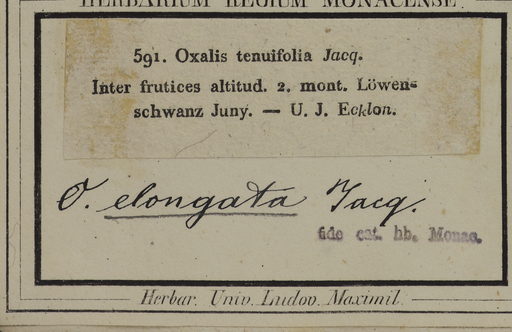 HERBARIUM REGIUM MONACENSE.
591. Oxalis tenuifolia Jacq.
Inter frutices altitud. 2. mont. Löwen-
schwanz Juny. — U. J. Ecklon.
O. elongata Jacq.
fide cat. hb. Monac.
Herbar. Univ. Ludov. Maximil.